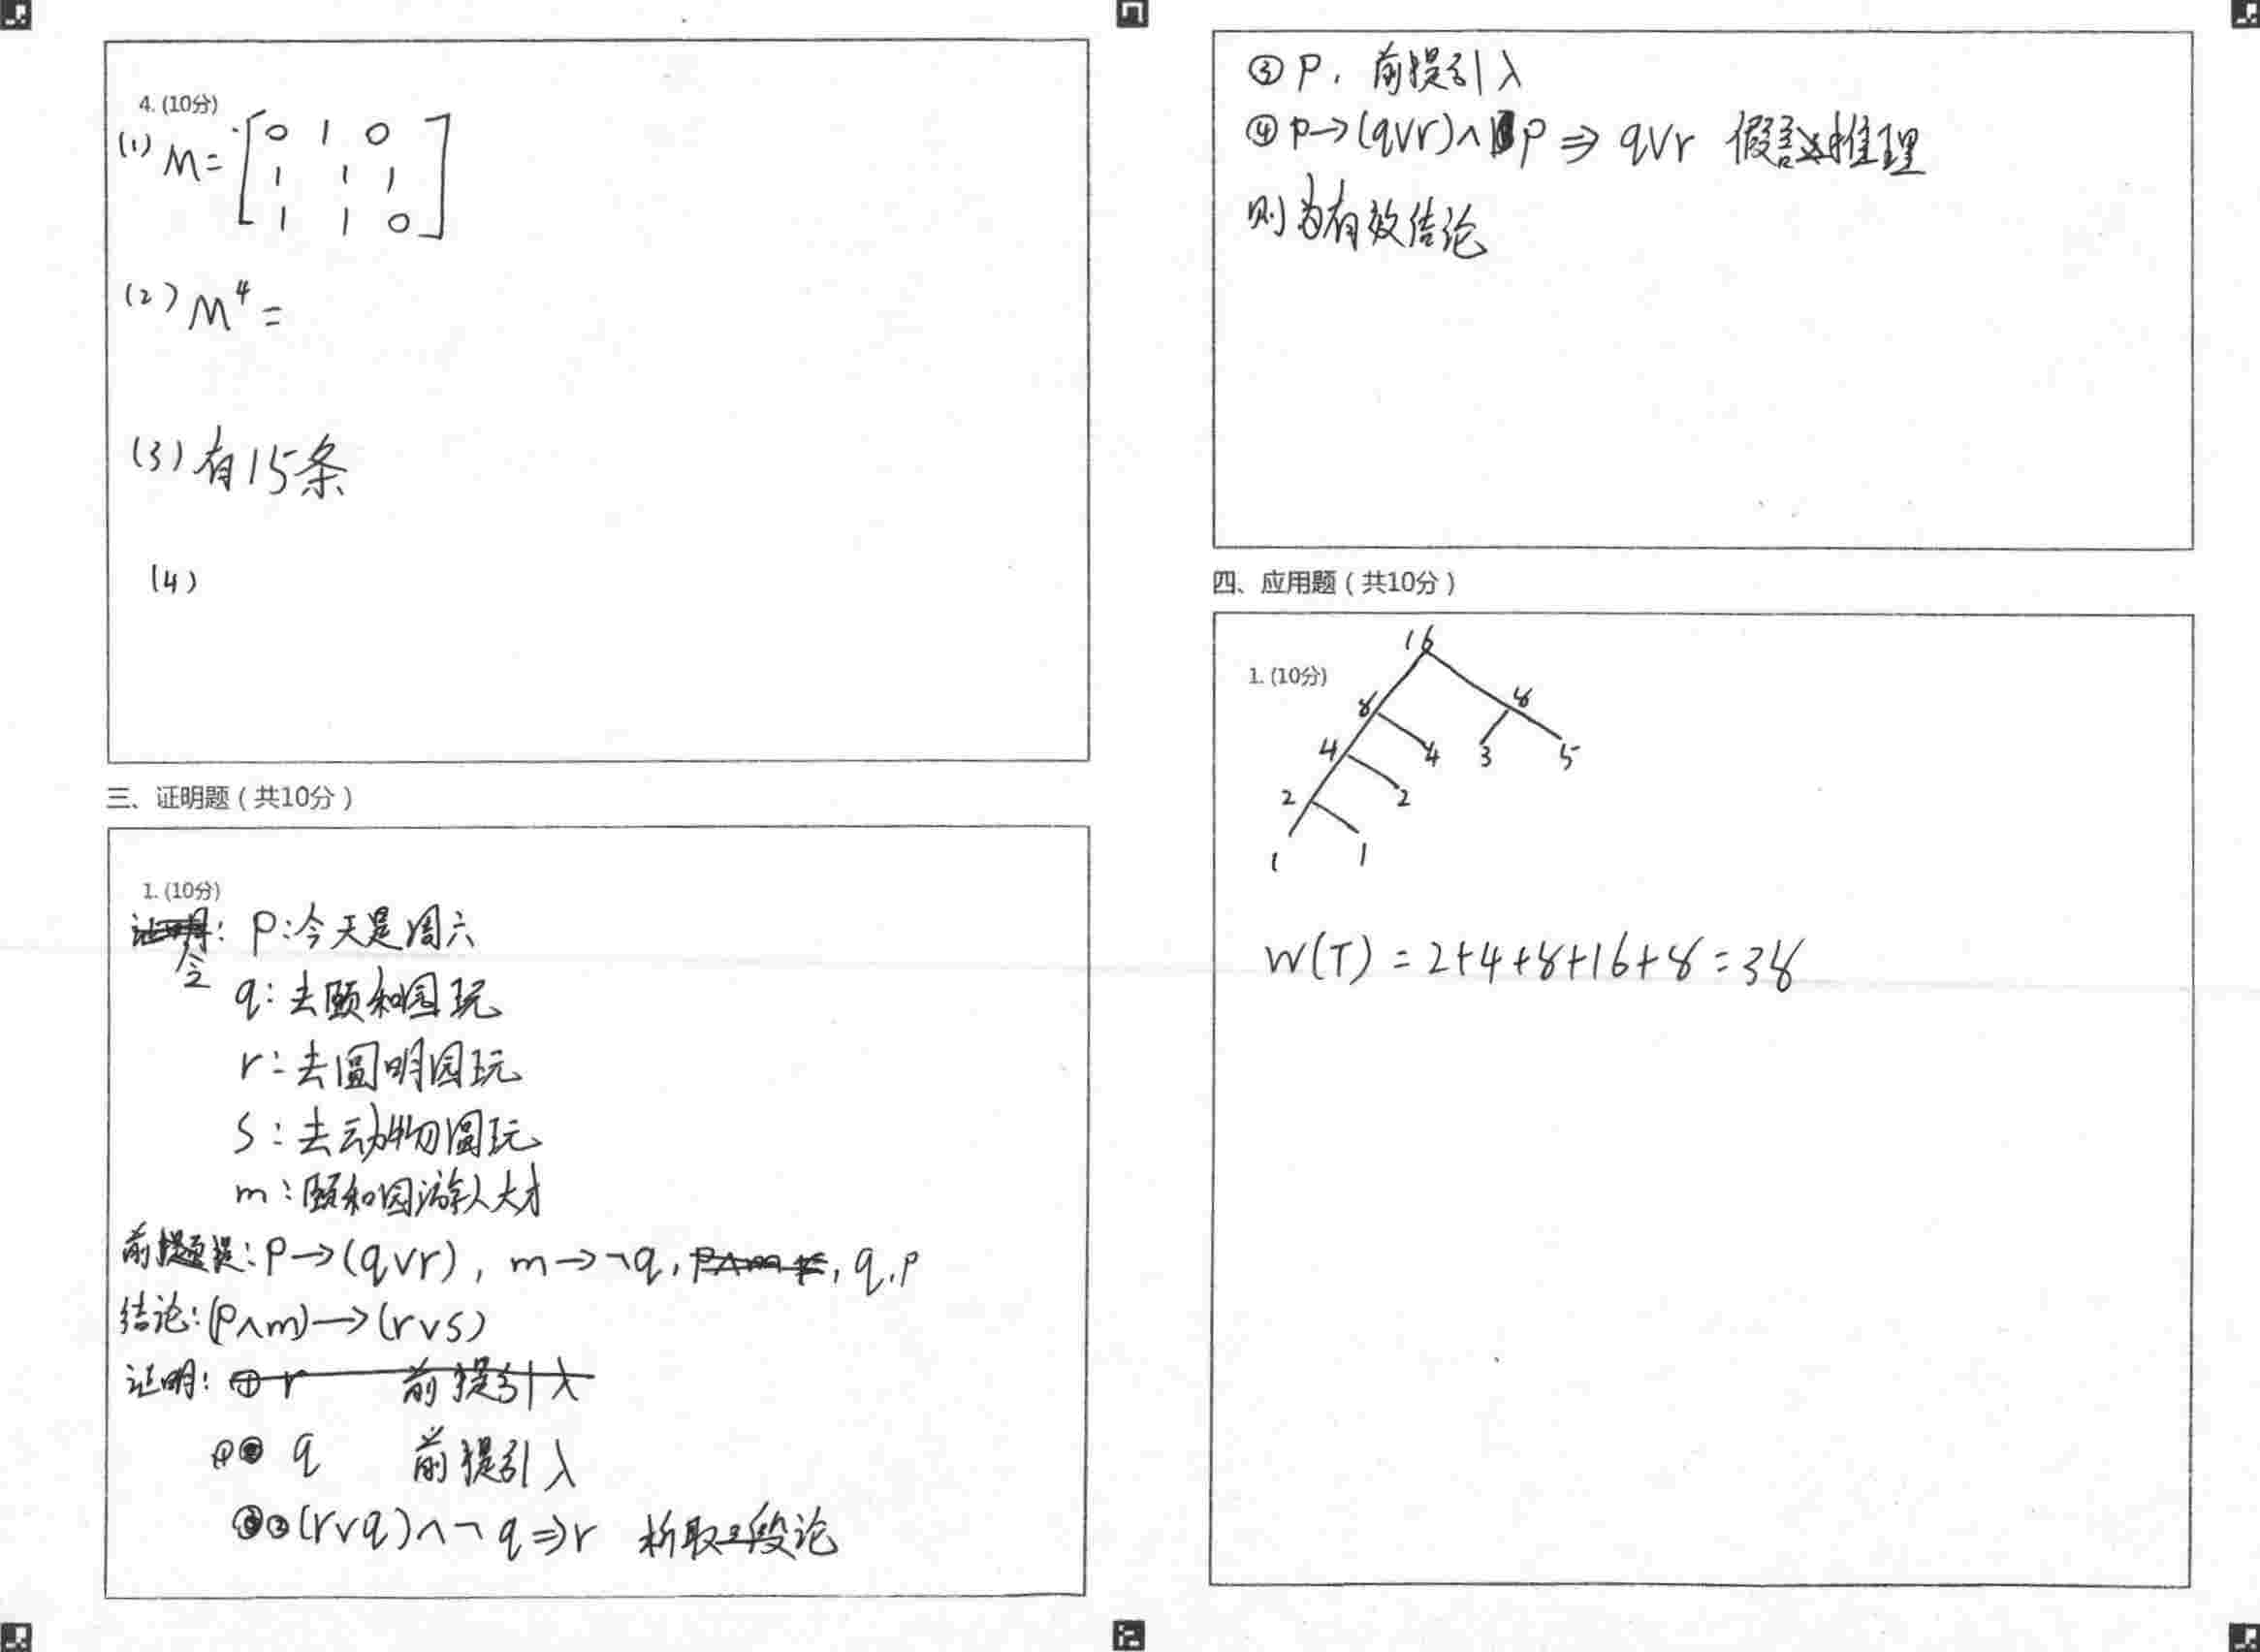 4. (10分)
(1) M = [0 1 0
1 1 1
1 1 0]
(2) M⁴ =
(3) 有15条
(4)
三、证明题（共10分）
1. (10分)
证明: p:今天是周六
令
q:去颐和园玩
r:去圆明园玩
s:去动物园玩
m:颐和园游人太多
前提: p→(q∨r), m→¬q, p∧m, q, p
结论: (p∧m)→(r∨s)
证明: ① r 前提引入
① q 前提引入
② (r∨q)∧¬q⇒r 析取三段论
③ p, 前提引入
④ p→(q∨r)∧p ⇒ q∨r 假言推理
则为有效结论
四、应用题（共10分）
1. (10分)
16
8 8
4 4 3 5
2 2
1 1
W(T) = 2+4+8+16+8 = 38